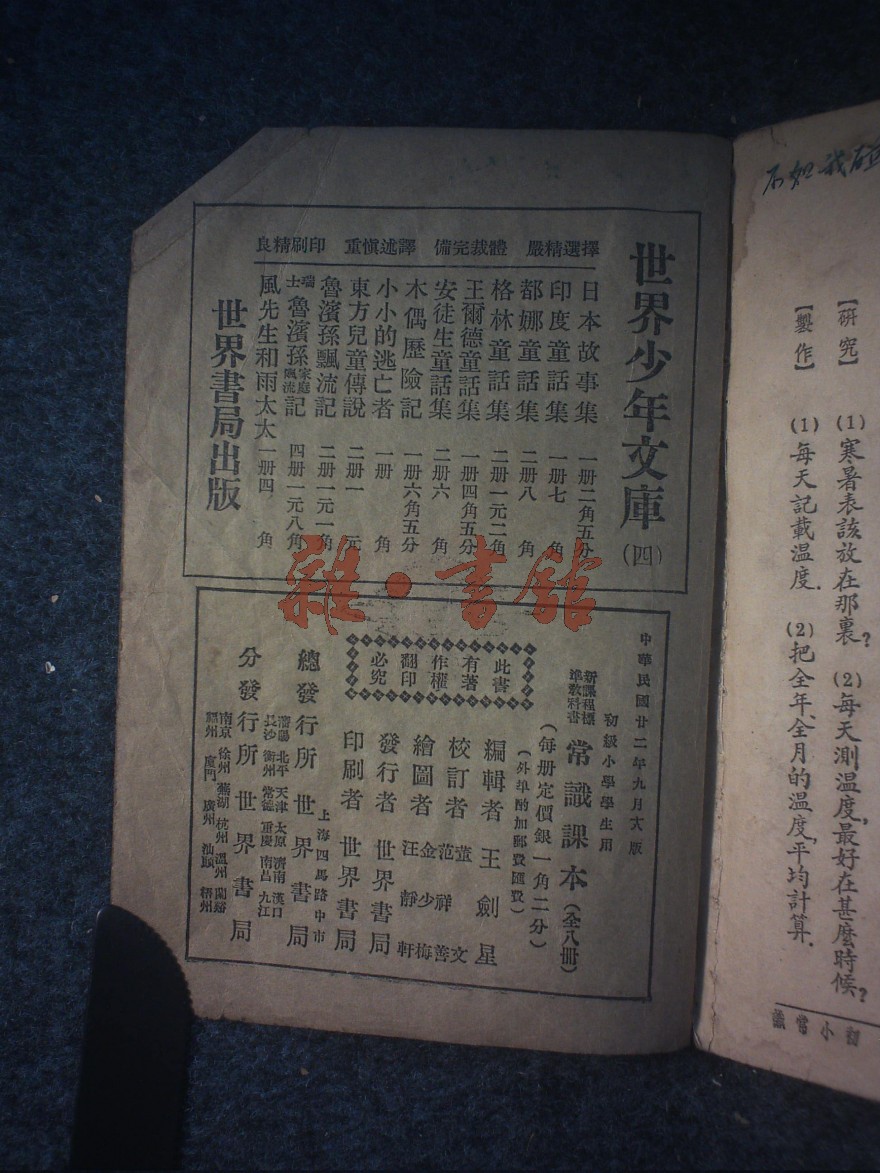 不如我
【研究】 (1)寒暑表該放在那裏? (2)每天測溫度,最好在甚麼時候?
【製作】 (1)每天記載溫度. (2)把全年、全月的溫度,平均計算.
初小常識
世界少年文庫(四)
擇選精嚴 體裁完備 譯述慎重 印刷精良
日本故事集 一册二角五分
印度童話集 一册七角
都娜童話集 二册八角
格林童話集 二册一元二角
王爾德童話集 一册四角五分
安徒生童話集 二册六角
木偶歷險記 一册六角五分
小小的逃亡者 一册 角
東方兒童傳說 二册一元
魯濱孫飄流記 二册一元一角
瑞士魯濱孫家庭飄流記 四册一元八角
風先生和雨太太 一册四角
世界書局出版
雜·書館
中華民國廿二年九月大版
初級小學學生用
新課程標準教科書 常識課本(全八冊)
(每册定價銀一角二分)
(外埠酌加郵費匯費)
此書有著作權翻印必究
編輯者 王劍星
校訂者 董文 范祥善
繪圖者 金少梅 汪靜軒
發行者 世界書局
印刷者 世界書局
上海四馬路中市
總發行所 世界書局
瀋陽 北平 天津 太原 濟南 漢口
長沙 衡州 常德 重慶 南昌 九江
分發行所 世界書局
南京 徐州 蕪湖 杭州 溫州 蘭谿
福州 廈門 廣州 汕頭 梧州